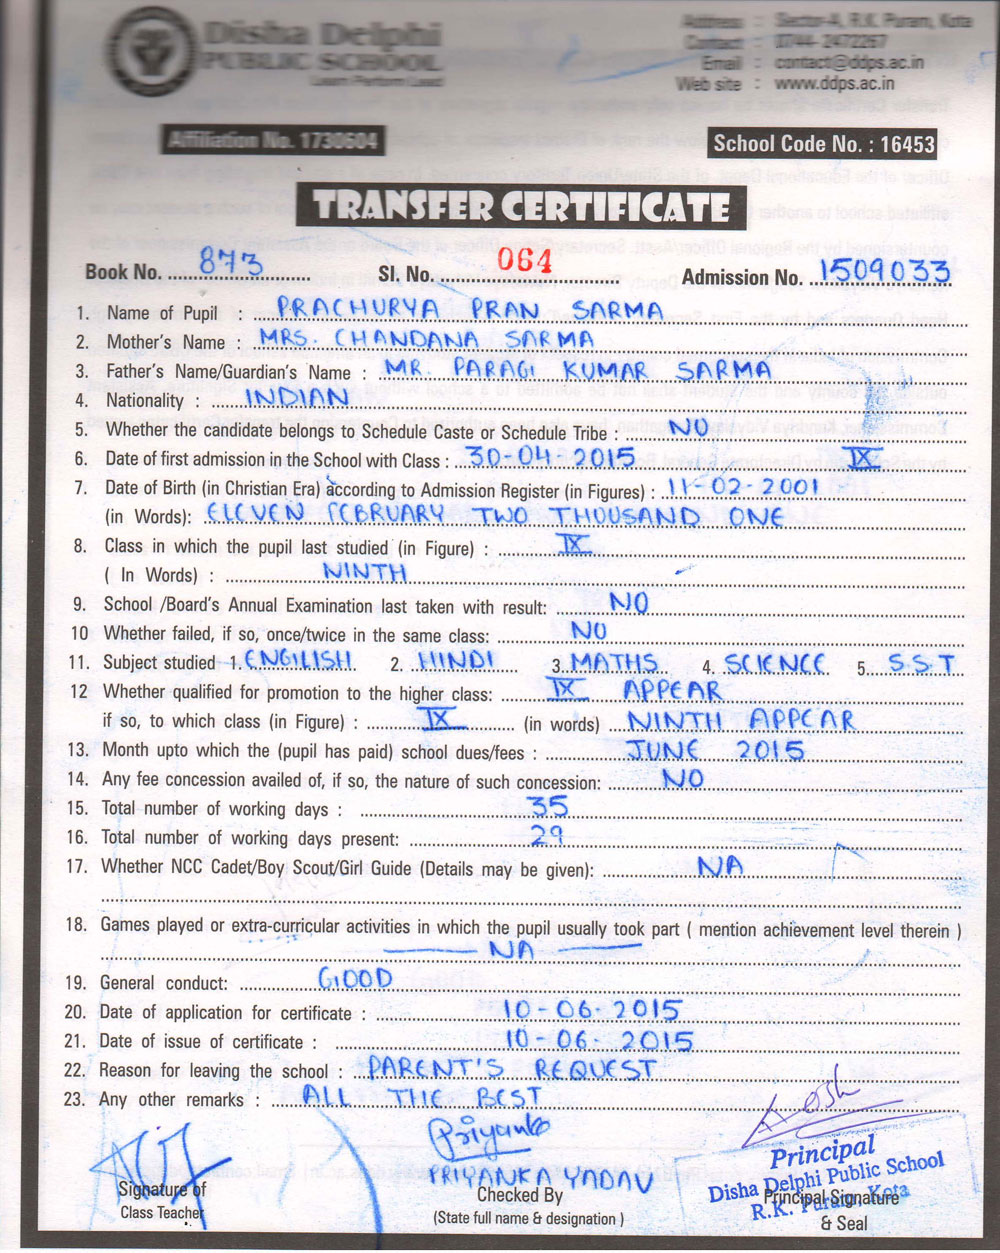 Disha Delphi
PUBLIC SCHOOL
Learn Perform Lead
Address : Sector-A, R.K. Puram, Kota
Contact : 0744-2472267
Email : contact@ddps.ac.in
Web site : www.ddps.ac.in
Affiliation No. 1730604
School Code No. : 16453
TRANSFER CERTIFICATE
Book No. 873 Sl. No. 064 Admission No. 1509033
1. Name of Pupil : PRACHURYA PRAN SARMA
2. Mother's Name : MRS. CHANDANA SARMA
3. Father's Name/Guardian's Name : MR. PARAGI KUMAR SARMA
4. Nationality : INDIAN
5. Whether the candidate belongs to Schedule Caste or Schedule Tribe : NO
6. Date of first admission in the School with Class : 30-04-2015 IX
7. Date of Birth (in Christian Era) according to Admission Register (in Figures) : 11-02-2001
(in Words): ELEVEN FEBRUARY TWO THOUSAND ONE
8. Class in which the pupil last studied (in Figure) : IX
( In Words) : NINTH
9. School /Board's Annual Examination last taken with result: NO
10 Whether failed, if so, once/twice in the same class: NO
11. Subject studied 1. ENGILISH 2. HINDI 3. MATHS 4. SCIENCE 5. S.S.T
12 Whether qualified for promotion to the higher class: IX APPEAR
if so, to which class (in Figure) : IX (in words) NINTH APPEAR
13. Month upto which the (pupil has paid) school dues/fees : JUNE 2015
14. Any fee concession availed of, if so, the nature of such concession: NO
15. Total number of working days : 35
16. Total number of working days present: 29
17. Whether NCC Cadet/Boy Scout/Girl Guide (Details may be given): NA
18. Games played or extra-curricular activities in which the pupil usually took part ( mention achievement level therein )
NA
19. General conduct: GOOD
20. Date of application for certificate : 10-06-2015
21. Date of issue of certificate : 10-06-2015
22. Reason for leaving the school : PARENT'S REQUEST
23. Any other remarks : ALL THE BEST
Priyanka
PRIYANKA YADAV
Signature of
Class Teacher
Checked By
(State full name & designation )
Principal
Disha Delphi Public School
R.K. Puram, Kota
Principal Signature
& Seal